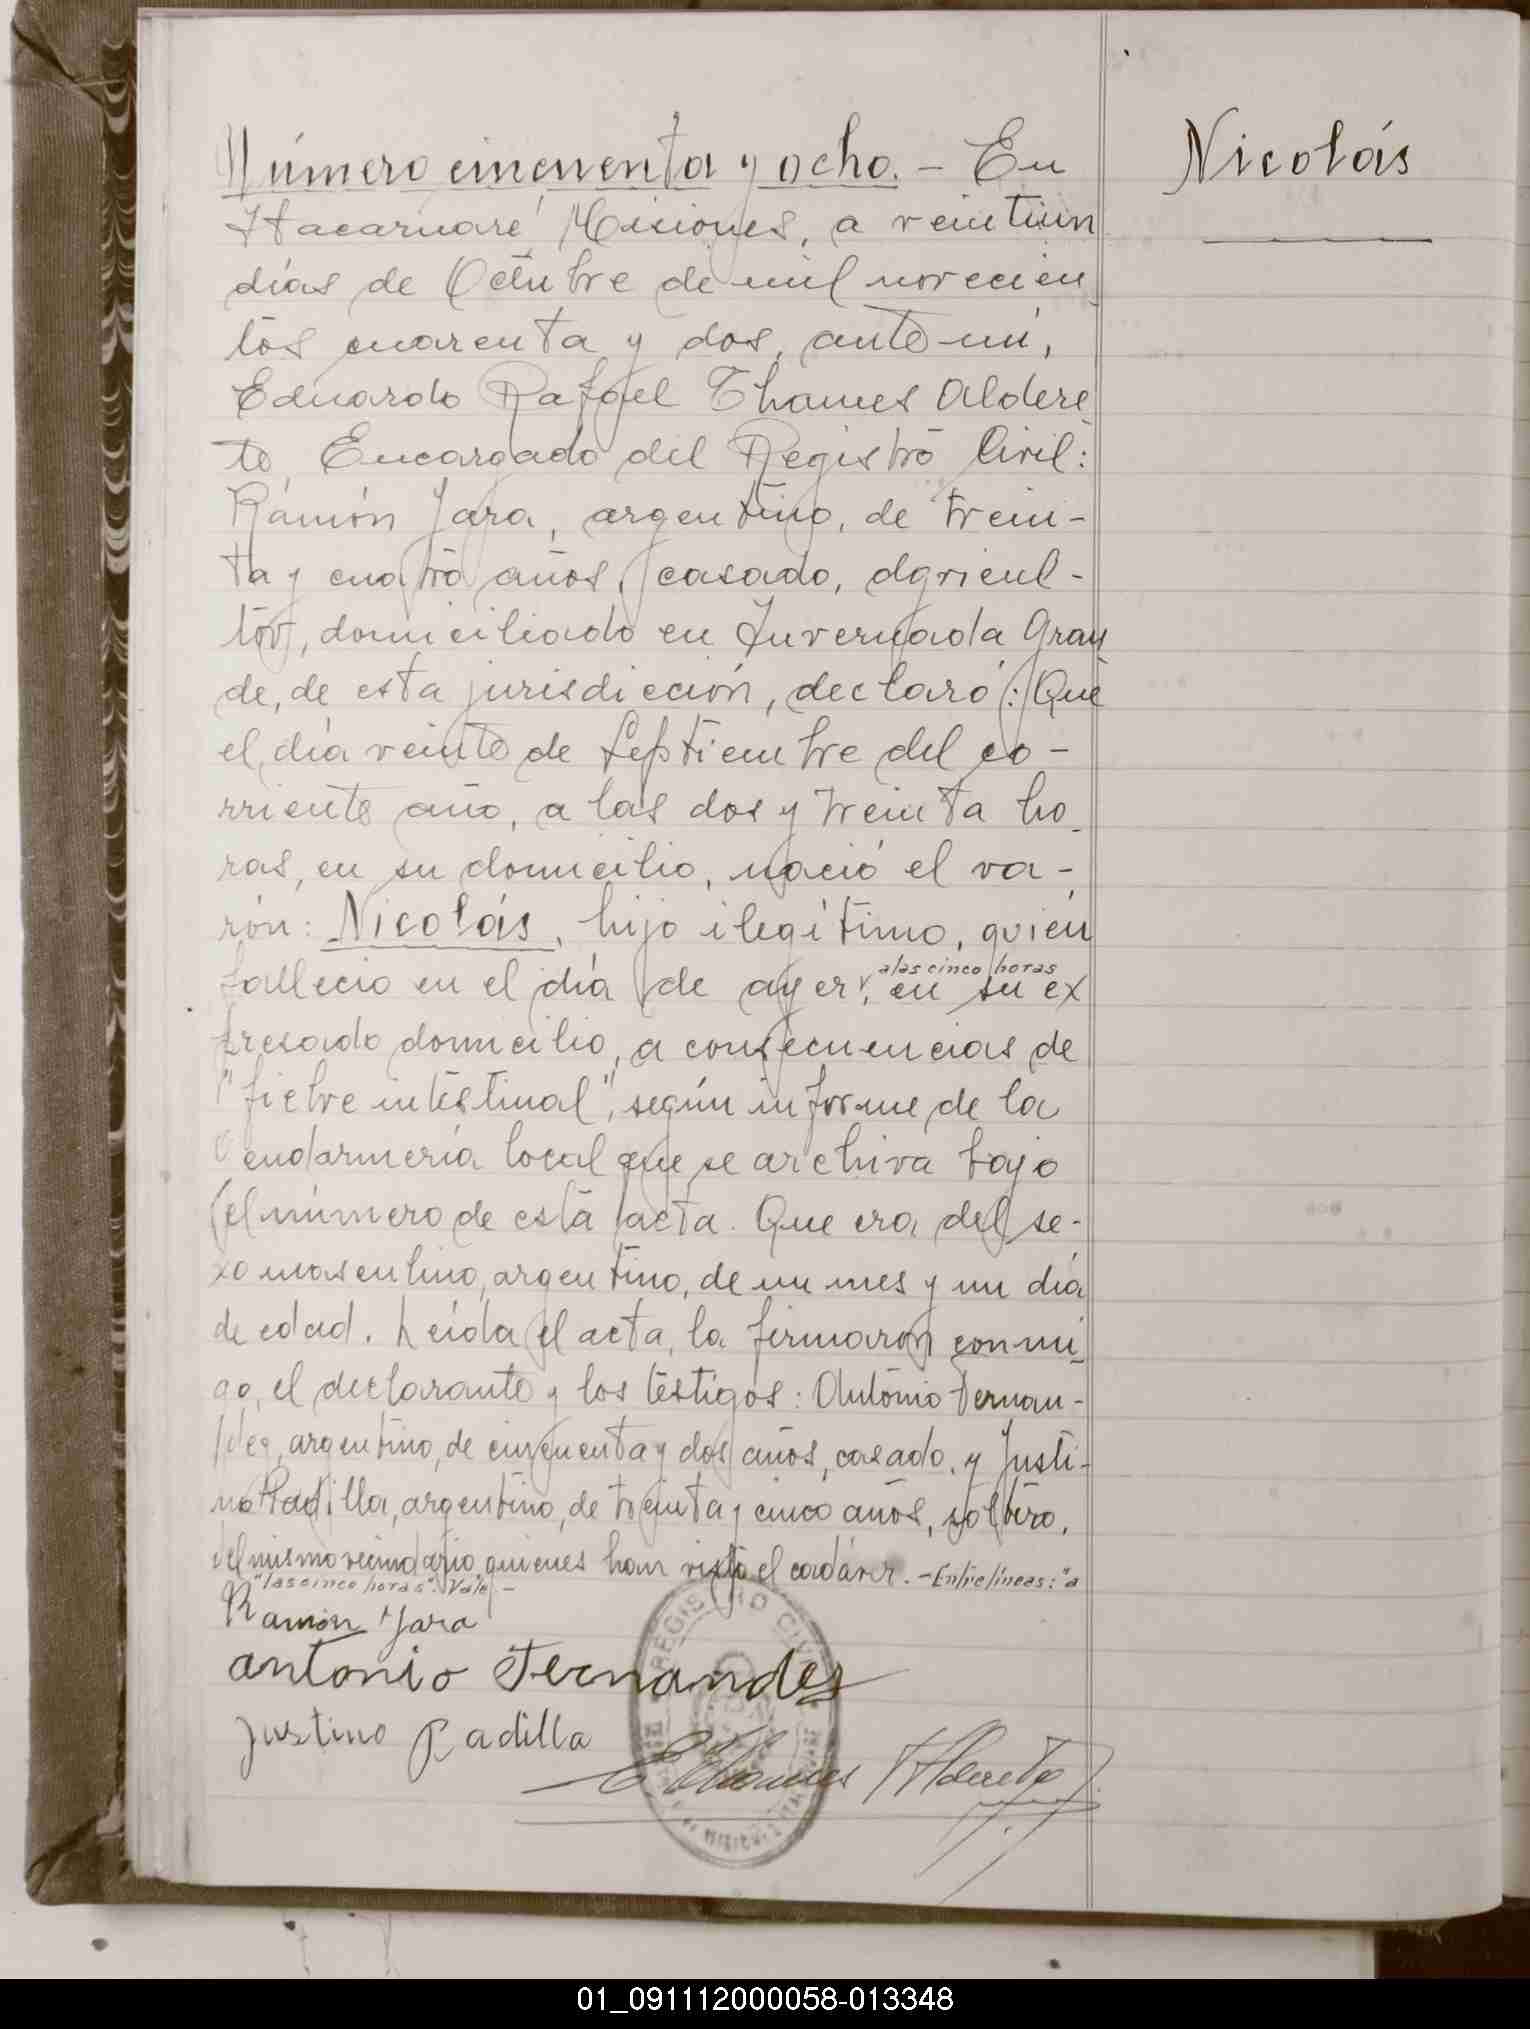 Número cincuenta y ocho. - En
Itacaruaré Misiones, a veintiun
días de Octubre de mil novecien
tos cuarenta y dos, ante mí,
Eduardo Rafael Thames Aldere
te Encargado del Registro Civil:
Ramón Jara, argentino, de trein-
ta y cuatro años, casado, agricul-
tor, domiciliado en Invernada Gran
de, de esta jurisdicción, declaró: Que
el día veinte de Septiembre del co-
rriente año, a las dos y treinta ho
ras, en su domicilio, nació el va-
rón: Nicolás, hijo ilegítimo, quién
a las cinco horas
falleció en el día de ayer, en su ex
presado domicilio, a consecuencias de
"fiebre intestinal", según informe de la
Gendarmería local que se archiva bajo
el número de esta acta. Que era del se-
xo masculino, argentino, de un mes y un día
de edad. Leída el acta, la firmaron conmi
go, el declarante y los testigos: Antonio Fernan-
dez, argentino, de cincuenta y dos años, casado, y Justi-
no Padilla, argentino, de treinta y cinco años, soltero,
del mismo vecindario quienes han visto el cadáver. - Entrelíneas: "a
"las cinco horas". Vale. -
Ramón Jara
antonio Fernandez
Justino Padilla
E Thames Alderete
REGISTRO CIVIL
Nicolás
01_091112000058-013348